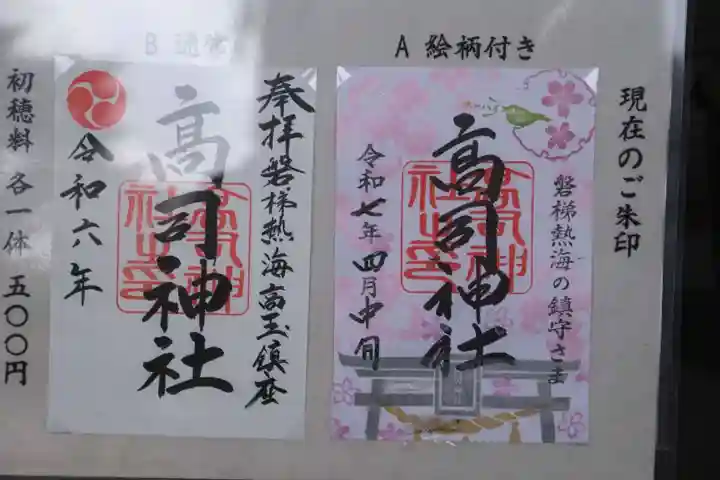 現在のご朱印
A 絵柄付き
磐梯熱海の鎮守さま
高司神社
令和七年 四月中旬
B 通常
奉拝 磐梯熱海高玉鎮座
高司神社
令和六年
初穂料 各一体 五〇〇円